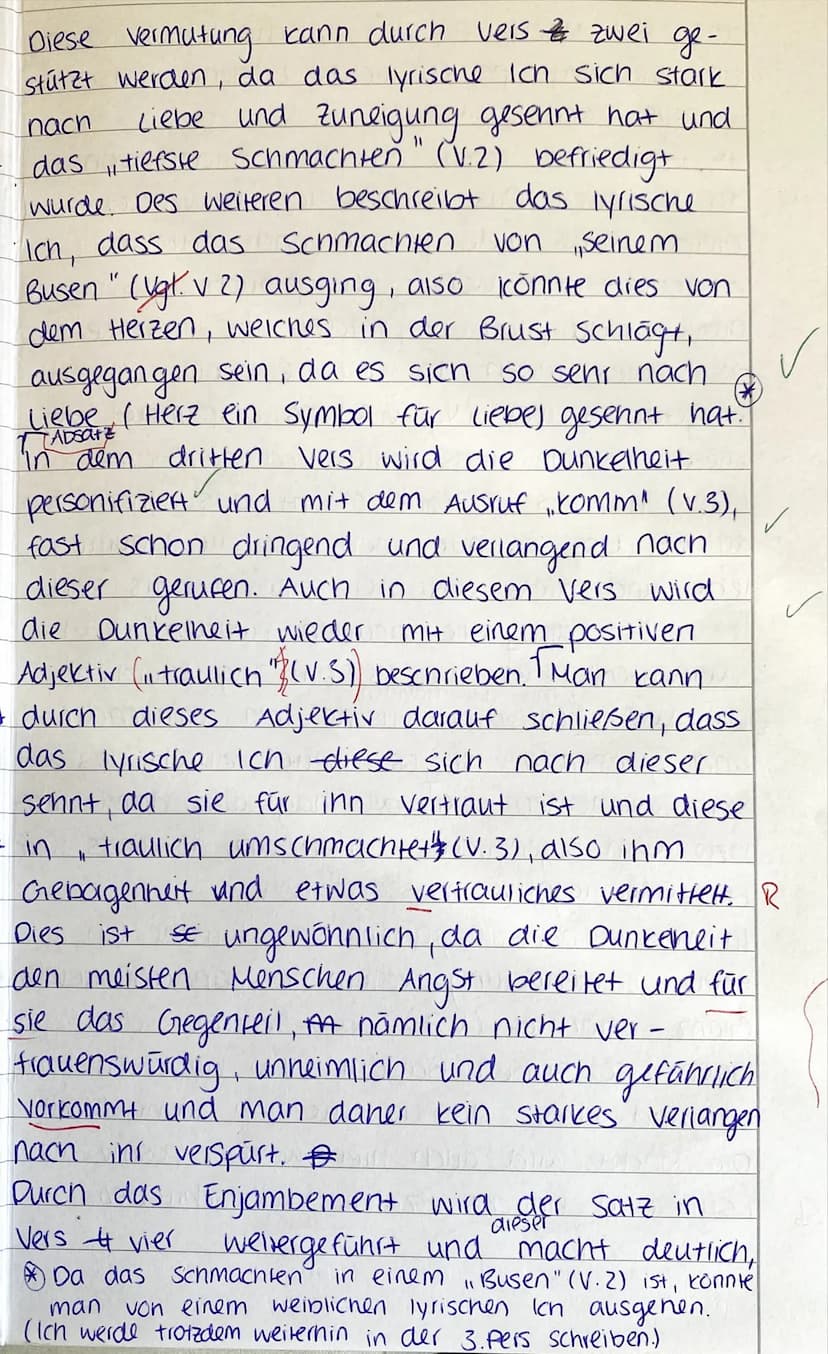 Diese Vermutung kann durch Vers zwei ge-
stützt werden, da das lyrische Ich sich stark
nach Liebe und Zuneigung gesehnt hat und
das „tiefste Schmachten" (V.2) befriedigt
wurde. Des weiteren beschreibt das lyrische
Ich, dass das Schmachten von „seinem
Busen" (Vgl. V 2) ausging, also könnte dies von
dem Herzen, welches in der Brust schlägt,
ausgegangen sein, da es sich so sehr nach
Liebe (Herz ein Symbol für Liebe) gesehnt hat. *
Absatz
In dem dritten Vers wird die Dunkelheit
personifiziert und mit dem Ausruf „komm" (V.3),
fast schon dringend und verlangend nach
dieser gerufen. Auch in diesem Vers wird
die Dunkelheit wieder mit einem positiven
Adjektiv („traulich" (V.3)) beschrieben. Man kann
durch dieses Adjektiv darauf schließen, dass
das lyrische Ich diese sich nach dieser
sehnt, da sie für ihn vertraut ist und diese
in „traulich umschmachtet" (V.3), also ihm
Gebogenheit und etwas vertrauliches vermittelt. R
Dies ist ungewöhnlich, da die Dunkeheit
den meisten Menschen Angst bereitet und für
sie das Gegenteil, nämlich nicht ver-
trauenswürdig, unheimlich und auch gefährlich
vorkommt und man daher kein starkes Verlangen
nach ihr verspürt.
Durch das Enjambement wird der Satz in
Vers 4 vier weitergeführt und dieser macht deutlich,
* Da das Schmachten in einem „Busen" (V.2) ist, könnte
man von einem weiblichen lyrischen Ich ausgehen.
(Ich werde trotzdem weiterhin in der 3.Pers schreiben.)